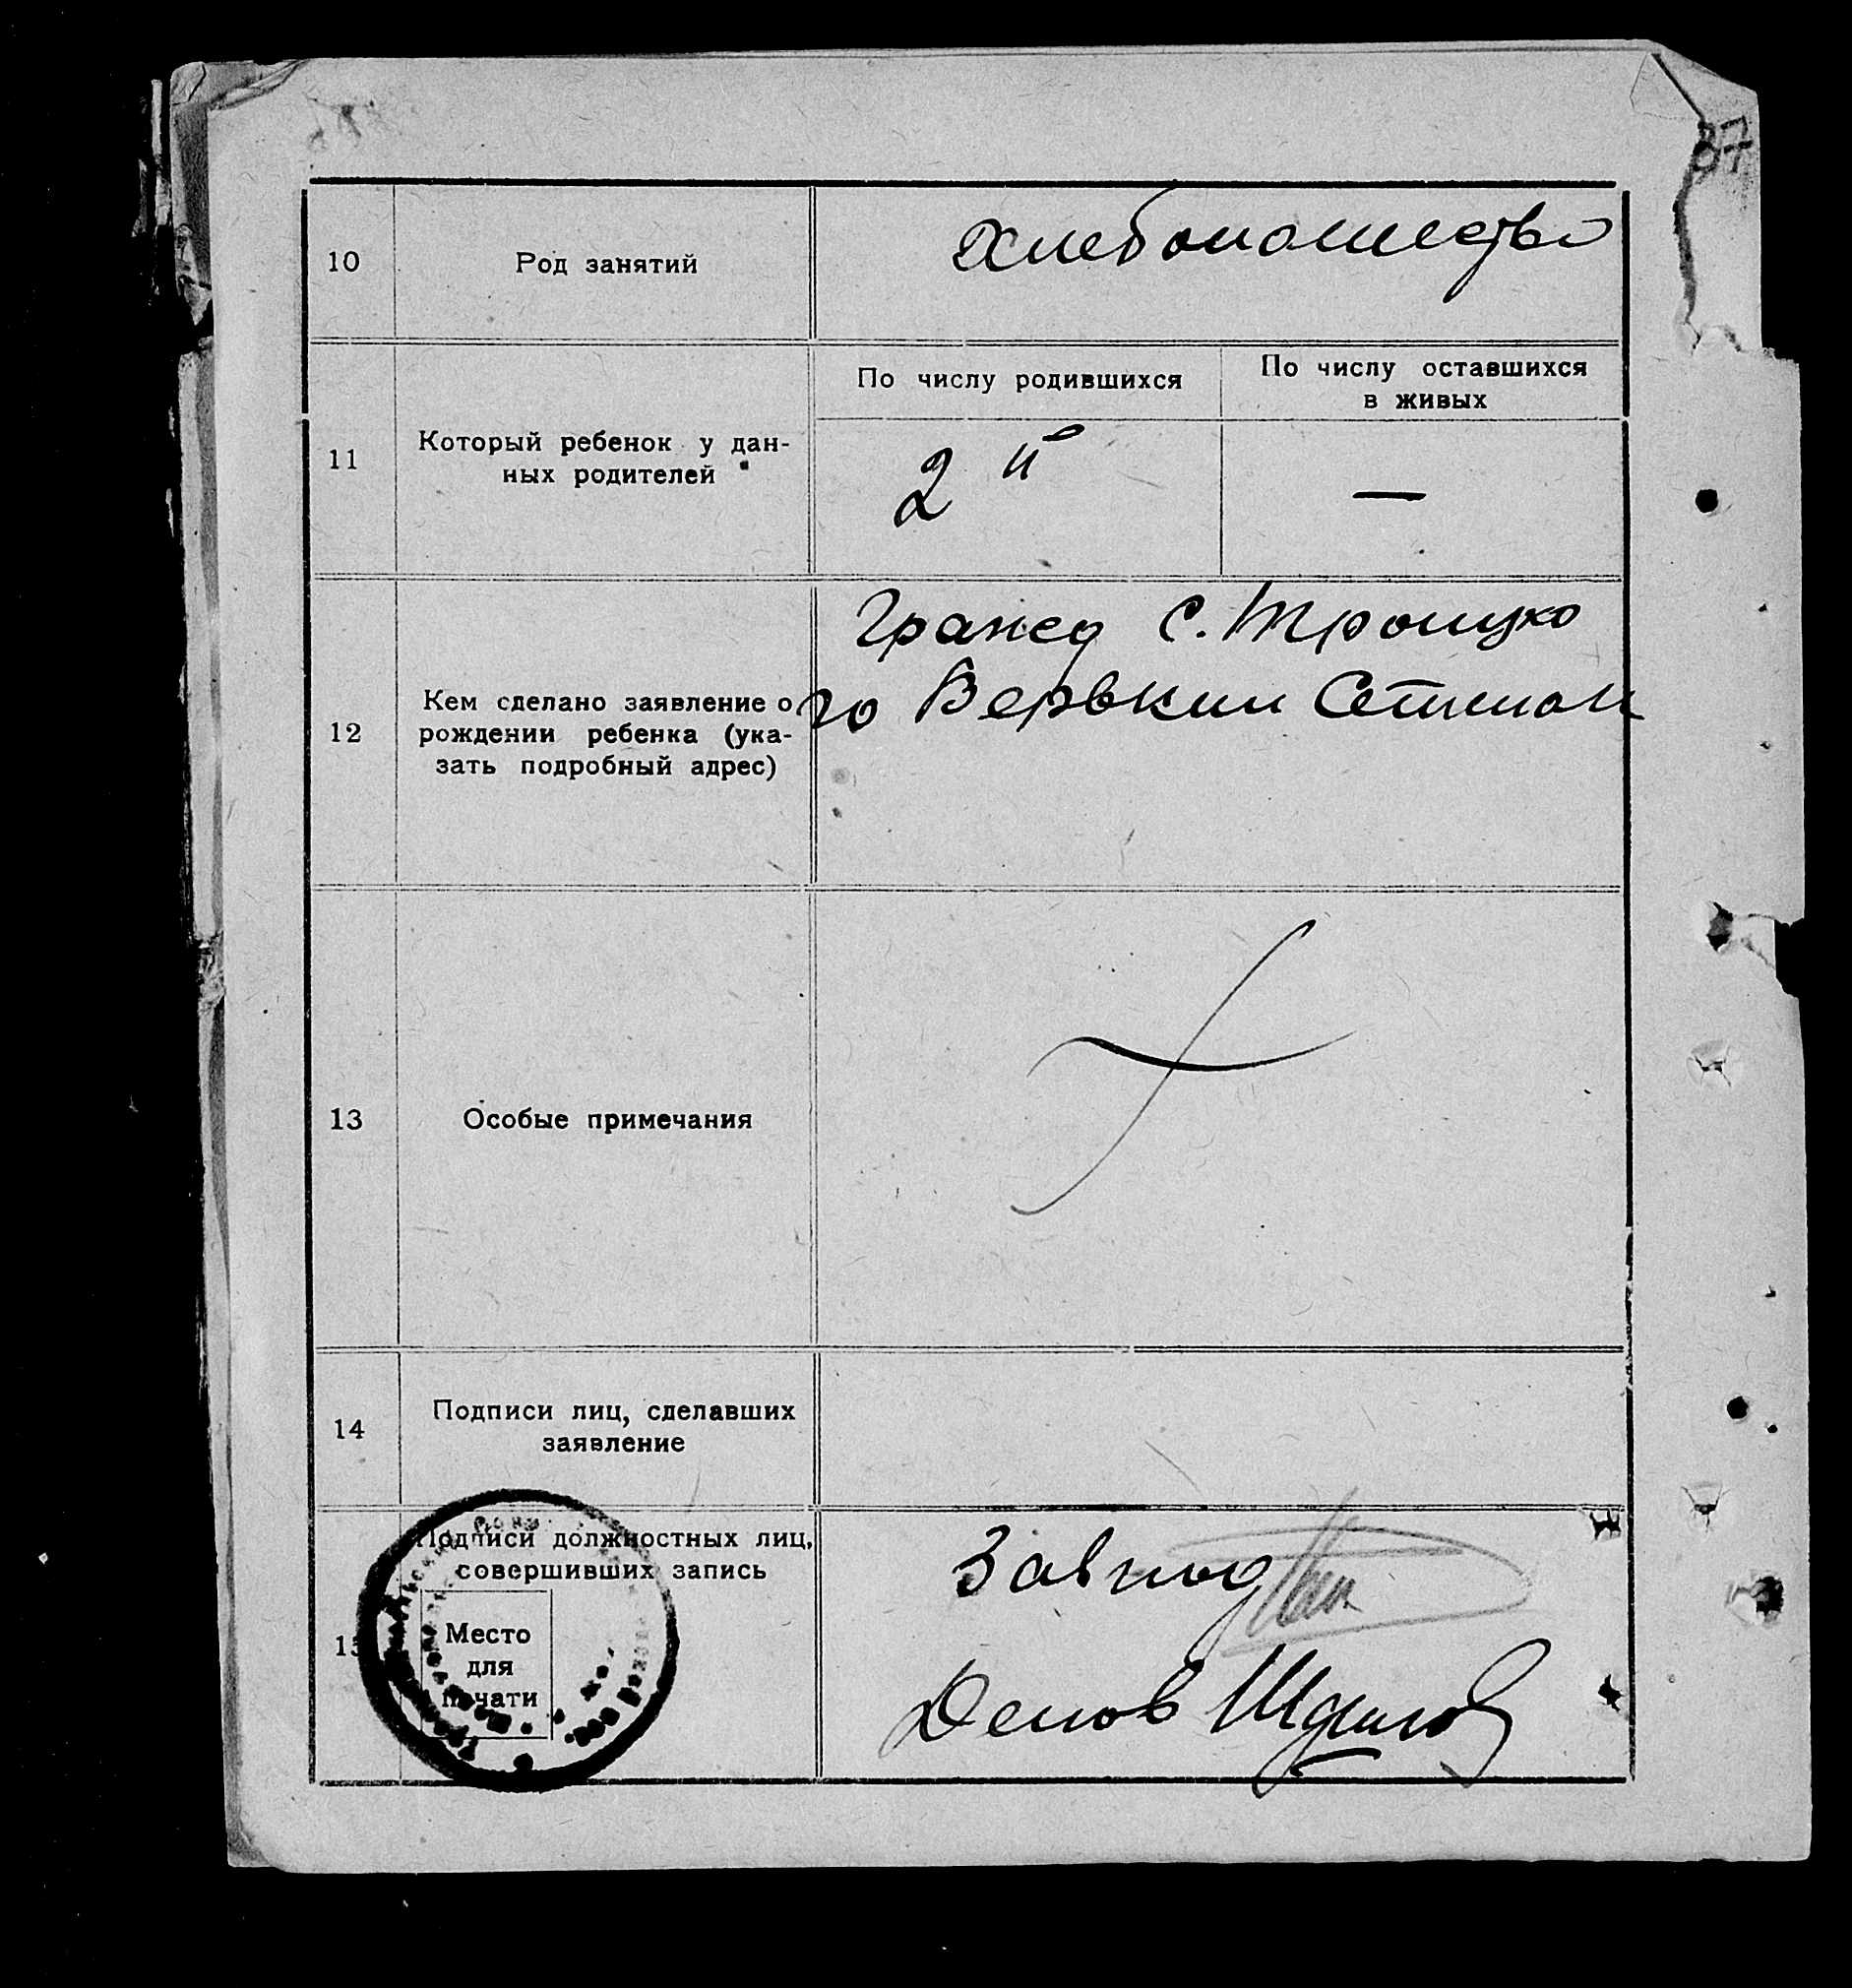 87
10 Род занятий хлебопашество
11 Который ребенок у дан-
ных родителей
По числу родившихся
2 й
По числу оставшихся
в живых
—
12 Кем сделано заявление о
рождении ребенка (ука-
зать подробный адрес)
Гражд с. Троицко
го Веревкин Степан
13 Особые примечания
14 Подписи лиц, сделавших
заявление
15 Подписи должностных лиц,
совершивших запись
Место
для
печати
Завпод
Делов